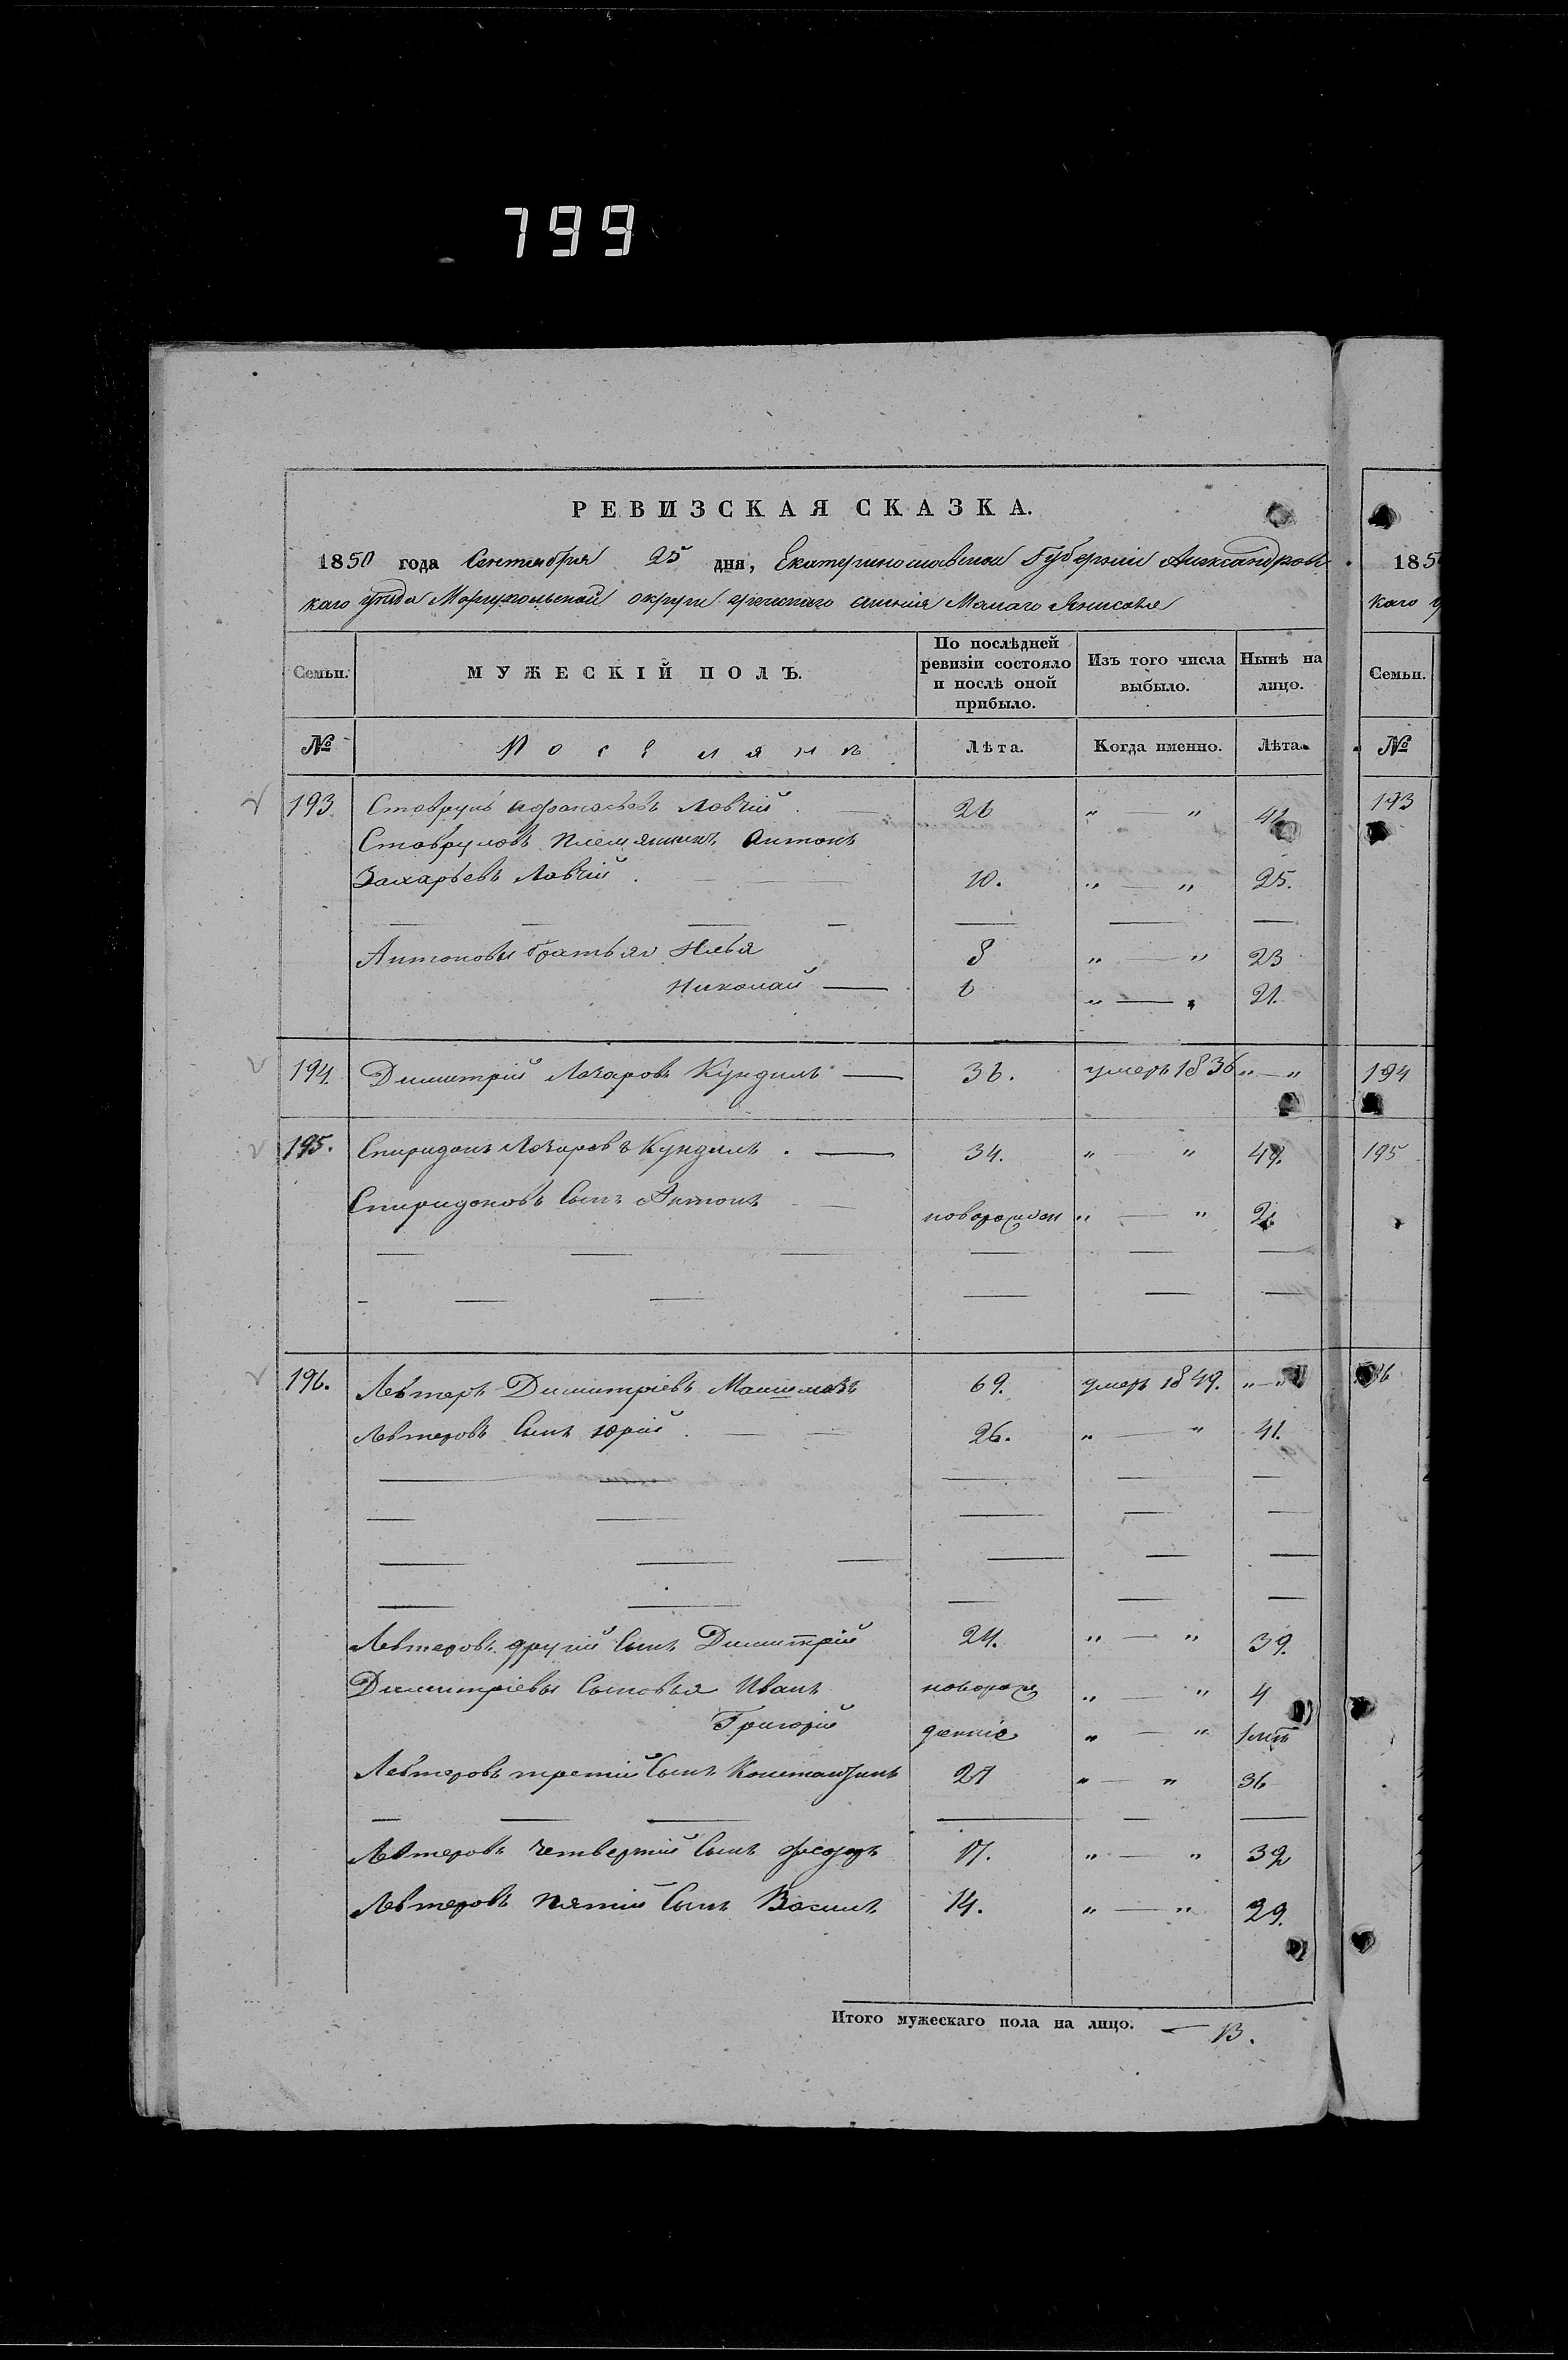 799
РЕВИЗСКАЯ СКАЗКА.
1850 года Сентября 25 дня, Екатеринославской Губерніи Александровс
каго уезда Мариупольской округи греческаго селенія Малаго Янисоля
Семьи. МУЖЕСКІЙ ПОЛЪ. По послѣдней ревизіи состояло и послѣ оной прибыло. Изъ того числа выбыло. Нынѣ на лицо.
№ Поселянъ Лѣта. Когда именно. Лѣта.
193 Ставрулъ Афанасьевъ Лавчій . — 26 " — " 41
Ставруловъ племянникъ Антонъ
Захарьевъ Лавчій . — 10. " — " 25.
Антоновы братья Илья 8 " — " 23
Николай — 6 " — " 21.
194. Димитрій Лазаровъ Кундилъ — 36. умеръ 1836 " — "
195. Спиридонъ Лазаровъ Кундилъ . — 34. " — " 49.
Спиридоновъ сынъ Антонъ — новорожден " — " 2.
196. Левтеръ Димитріевъ 69. умеръ 1849. " — "
Левтеровъ сынъ Юрій . — 26. " — " 41.
Левтеровъ другій сынъ Димитрій 24. " — " 39.
Димитріевы сыновья Иванъ новорож " — " 4
Григорій денніе " — " 1
Левтеровъ третій сынъ Константинъ 21 " — " 36
Левтеровъ четвертій сынъ Ѳедоръ 17. " — " 32
Левтеровъ пятій сынъ Василъ 14. " — " 29.
Итого мужескаго пола на лицо. — 13.
185
каго у
Семьи.
№
193
194
195